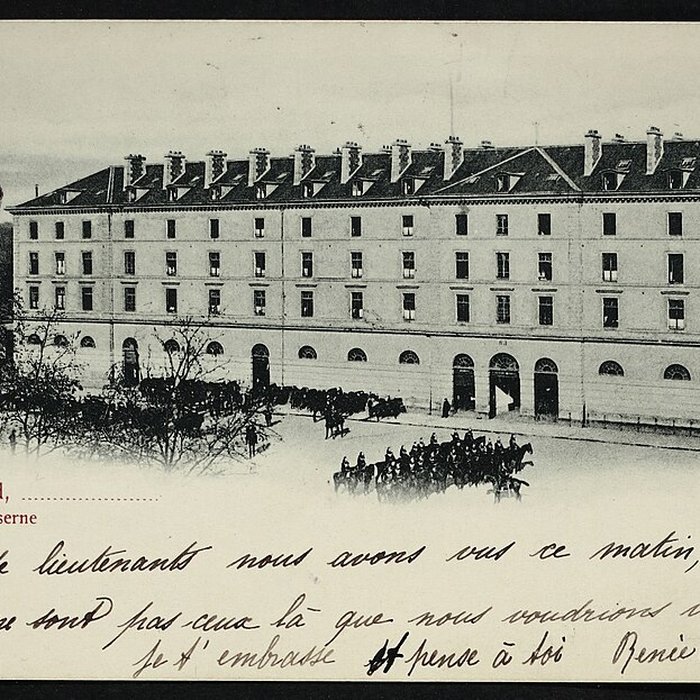 l, ........................
serne
de lieutenants nous avons vus ce matin,
ne sont pas ceux là que nous voudrions v
Je t'embrasse et pense à toi Renée